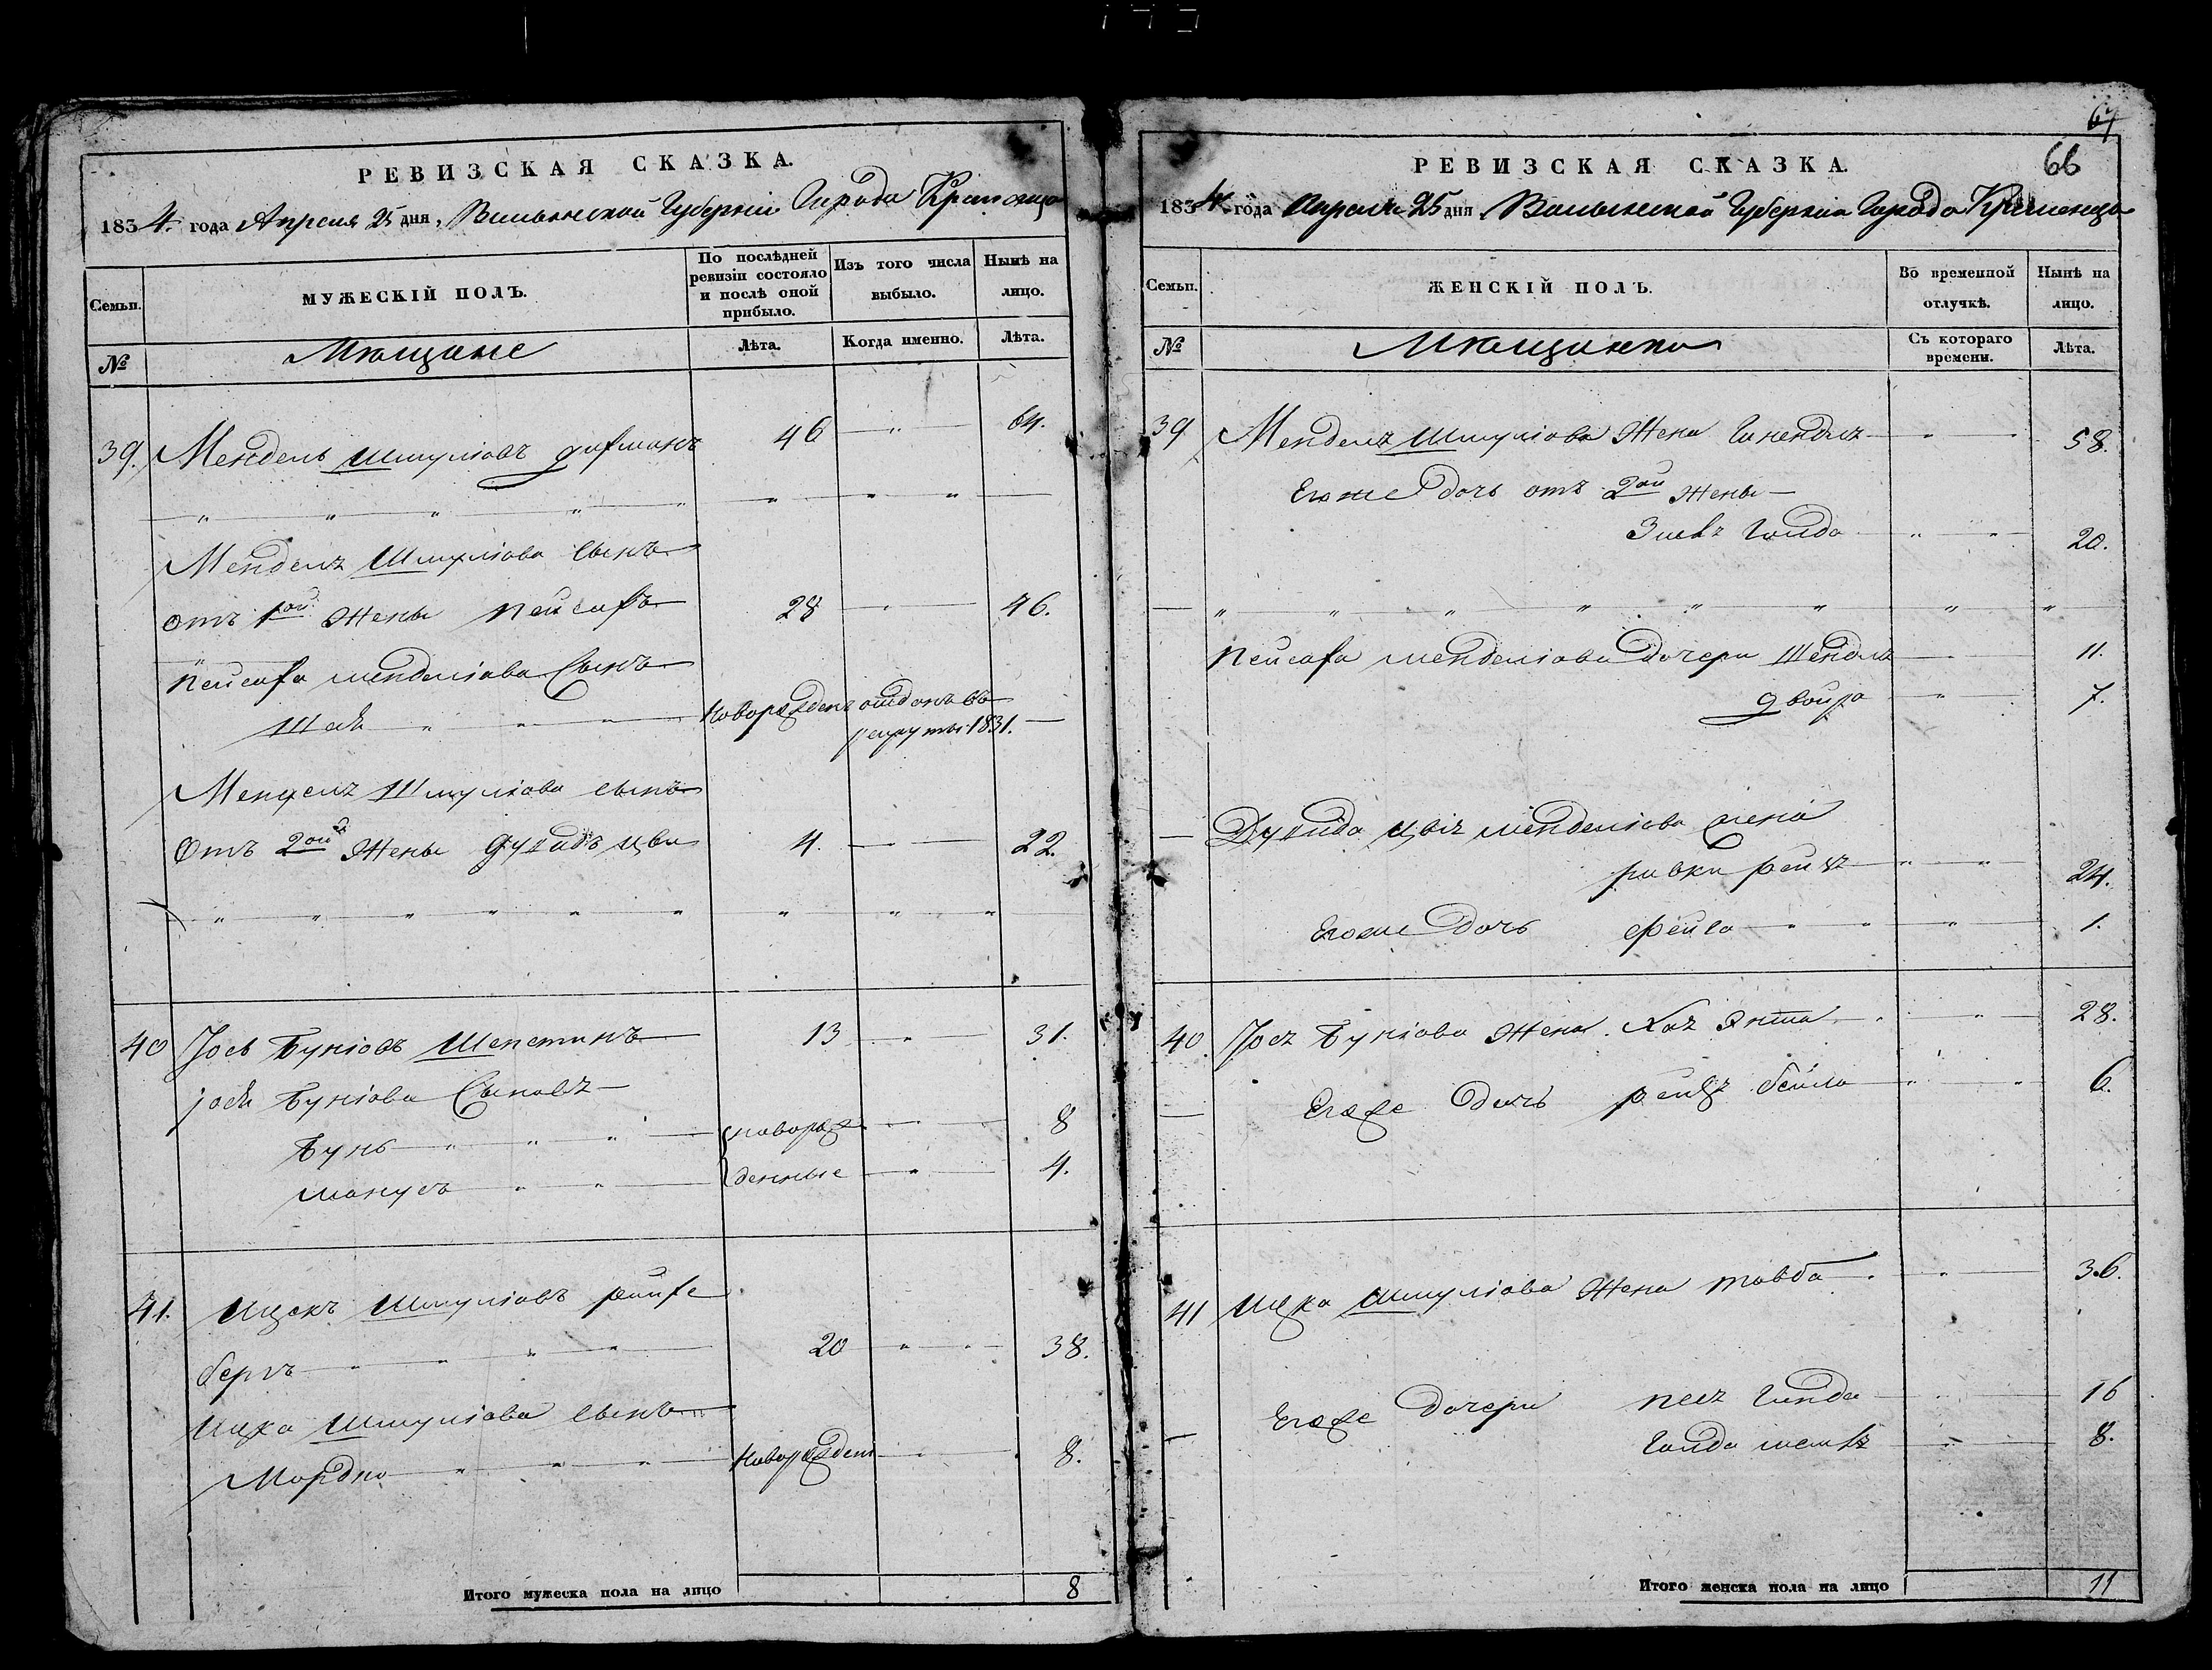 67
РЕВИЗСКАЯ СКАЗКА.
1834. года Апреля 25 дня, Волынской Губернии Города Кременца
Семьи.
МУЖЕСКІЙ ПОЛЪ.
По послѣдней ревизіи состояло и послѣ оной прибыло.
Изъ того числа выбыло.
Нынѣ на лицо.
№
Мѣщане
Лѣта.
Когда именно.
Лѣта.
39. Мендель Шмуліовъ 46 — " — 64.
Мендель Шмуліова Сынъ
Отъ 1ой Жены Пейсахъ 28 — " — 46.
Пейсаха Менделіова Сынъ
Новорожденъ отданъ въ
рекруты 1831. —
Шмуліова сынъ
Отъ 2ой Жены Дувидъ Цви 4. — 22.
40 Іось Буніовъ 13 — " — 31.
Буніова Сыновья
Бунь — " — " — новорож — 8
Манусъ — " — " — денные — " — 4.
41. Ицекъ Шмуліовъ
бергъ — " — " — 20 — " — 38.
Ицка Шмуліова Сынъ
Мордко — " — " — Новорожденъ — 8.
Итого мужеска пола на лицо 8
66
РЕВИЗСКАЯ СКАЗКА.
1834. года Апреля 25 дня Волынской Губерніи Города Кременца
Семьи.
ЖЕНСКІЙ ПОЛЪ.
Во временной отлучкѣ.
Нынѣ на лицо.
№
Мѣщанки
Съ котораго времени.
Лѣта.
39 Шмуліова Жена — " — 58.
Егоже Дочь отъ 2ой Жены —
Голда — " — " — 20.
Пейсаха Менделіова Дочери — 11.
Двойра — " — 7.
Дувида Менделіова жена
Ривка — " — " — 24.
Егоже Дочь Фейга — " — " — 1.
40. Буніова Жена — " — 28.
Егоже Дочь Бейла — " — " — 6.
41 Ицка Шмуліова Жена Тавба — " — 36.
Егоже Дочери — 16
Голда — " — 8.
Итого женска пола на лицо 11